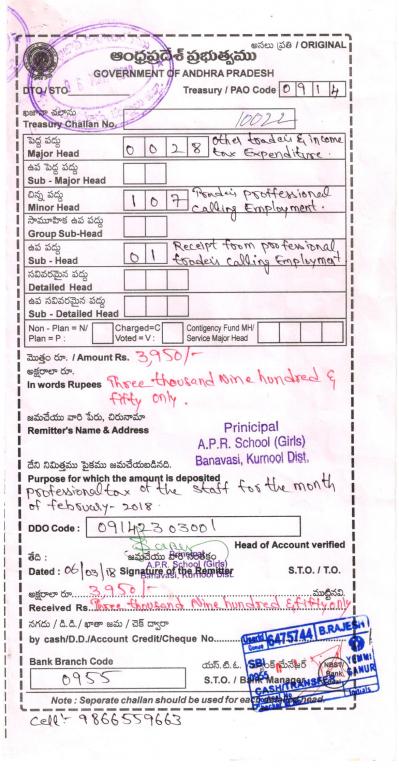 అసలు ప్రతి / ORIGINAL
ఆంధ్రప్రదేశ్ ప్రభుత్వము
GOVERNMENT OF ANDHRA PRADESH
DTO/STO Treasury / PAO Code 0914
ఖజానా చలాను
Treasury Challan No. 10022
పెద్ద పద్దు
Major Head 0028 Other trade's & income tax Expenditure.
ఉప పెద్ద పద్దు
Sub - Major Head
చిన్న పద్దు
Minor Head 107 Trade's proffessional calling Employment.
సామూహిక ఉప పద్దు
Group Sub-Head
ఉప పద్దు
Sub - Head 01 Receipt from professional trade's calling Employment
సవివరమైన పద్దు
Detailed Head
ఉప సవివరమైన పద్దు
Sub - Detailed Head
Non - Plan = N/ Charged=C Contigency Fund MH/
Plan = P : Voted = V : Service Major Head
మొత్తం రూ. / Amount Rs. 3,950/-
అక్షరాలా రూ.
In words Rupees Three thousand Nine hundred &
fifty only.
జమచేయు వారి పేరు, చిరునామా
Remitter's Name & Address
Prinicipal
A.P.R. School (Girls)
Banavasi, Kurnool Dist.
దేని నిమిత్తము పైకము జమచేయబడినది.
Purpose for which the amount is deposited
professional tax of the staff for the month
of february-2018.
DDO Code : 09142303001
Head of Account verified
తేది : జమచేయు వారి సంతకం
Principal
A.P.R. School (Girls)
Dated : 06/03/18 Signature of the Remitter S.T.O. / T.O.
Banavasi, Kurnool Dist.
అక్షరాలా రూ. 3,950/- ముట్టినవి.
Received Rs. Three thousand Nine hundred & fifty only
నగదు / డి.డి./ ఖాతా జమ / చెక్ ద్వారా
by cash/D.D./Account Credit/Cheque No.
6475744 B.RAJESH
SBI
0955
YEMMIGANUR
CASH/TRANSFER
Initials
Bank Branch Code
0955
యస్.టి.ఓ.
S.T.O. / Bank Manager
Note : Seperate challan should be used for each head.
cell:- 9866559663